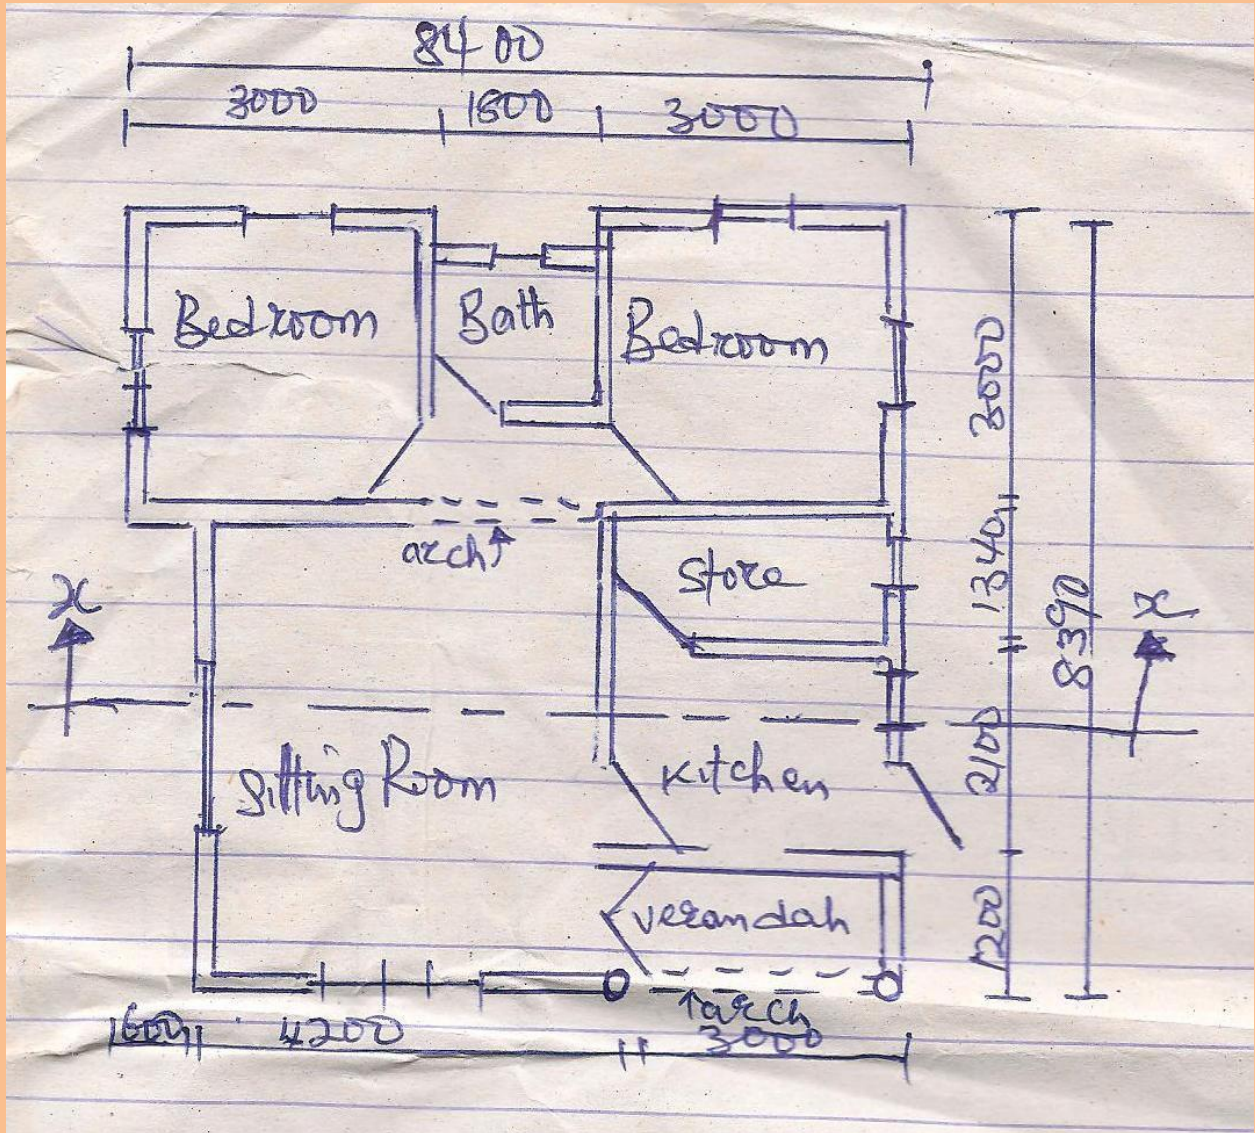 8400
3000 1800 3000
Bedroom Bath Bedroom
3000
arch
store
1340
x x
8390
Sitting Room Kitchen
2100
verandah
1200
arch
600 4200 3000